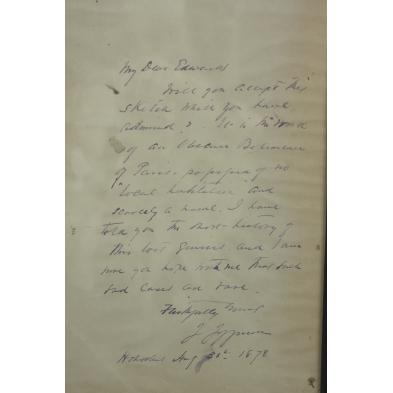 My Dear Edwards
Will you accept this
sketch which you have
admired? It is the work
of an obscure Bohemian
of Paris. possessing no
"local habitation" and
scarcely a name. I have
told you the short history of
this lost genius and I am
sure you hope with me that such
sad cases are rare.
Faithfully Yours
Aug 1878